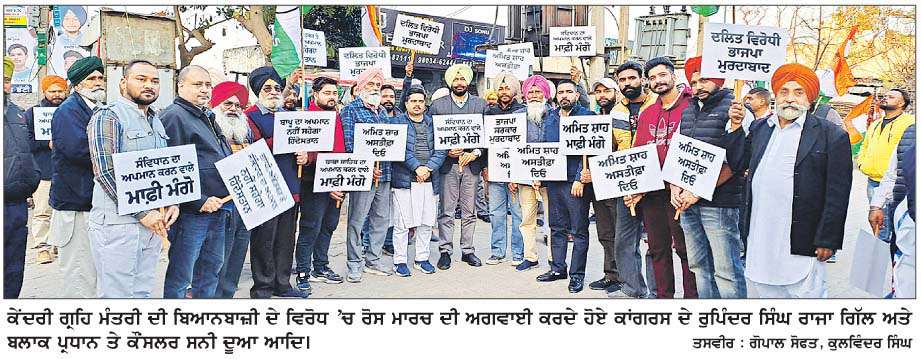 ਦਲਿਤ ਵਿਰੋਧੀ
ਭਾਜਪਾ
ਮੁਰਦਾਬਾਦ
DJ SONU
ਦਲਿਤ ਵਿਰੋਧੀ
ਭਾਜਪਾ
ਮੁਰਦਾਬਾਦ
ਮਾਫ਼ੀ ਮੰਗੋ
ਦਲਿਤ ਵਿਰੋਧੀ
ਭਾਜਪਾ
ਮੁਰਦਾਬਾਦ
ਬਾਪੂ ਦਾ ਅਪਮਾਨ
ਨਹੀਂ ਸਹੇਗਾ
ਹਿੰਦੋਸਤਾਨ
ਅਮਿਤ ਸ਼ਾਹ
ਅਸਤੀਫ਼ਾ
ਦਿਓ
ਸੰਵਿਧਾਨ ਦਾ
ਅਪਮਾਨ ਕਰਨ ਵਾਲੇ
ਮਾਫ਼ੀ ਮੰਗੋ
ਭਾਜਪਾ
ਸਰਕਾਰ
ਮੁਰਦਾਬਾਦ
ਅਮਿਤ ਸ਼ਾਹ
ਮਾਫ਼ੀ ਮੰਗੋ
ਸੰਵਿਧਾਨ ਦਾ
ਅਪਮਾਨ ਕਰਨ ਵਾਲੇ
ਮਾਫ਼ੀ ਮੰਗੋ
ਮਾਫ਼ੀ ਮੰਗੋ
ਅਮਿਤ ਸ਼ਾਹ
ਅਸਤੀਫ਼ਾ
ਦਿਓ
ਅਮਿਤ ਸ਼ਾਹ
ਅਸਤੀਫ਼ਾ
ਦਿਓ
ਅਮਿਤ ਸ਼ਾਹ
ਅਸਤੀਫ਼ਾ
ਦਿਓ
ਕੇਂਦਰੀ ਗ੍ਰਹਿ ਮੰਤਰੀ ਦੀ ਬਿਆਨਬਾਜ਼ੀ ਦੇ ਵਿਰੋਧ 'ਚ ਰੋਸ ਮਾਰਚ ਦੀ ਅਗਵਾਈ ਕਰਦੇ ਹੋਏ ਕਾਂਗਰਸ ਦੇ ਰੁਪਿੰਦਰ ਸਿੰਘ ਰਾਜਾ ਗਿੱਲ ਅਤੇ
ਬਲਾਕ ਪ੍ਰਧਾਨ ਤੇ ਕੌਂਸਲਰ ਸਨੀ ਦੂਆ ਆਦਿ। ਤਸਵੀਰ : ਗੋਪਾਲ ਸੋਵਤ, ਕੁਲਵਿੰਦਰ ਸਿੰਘ